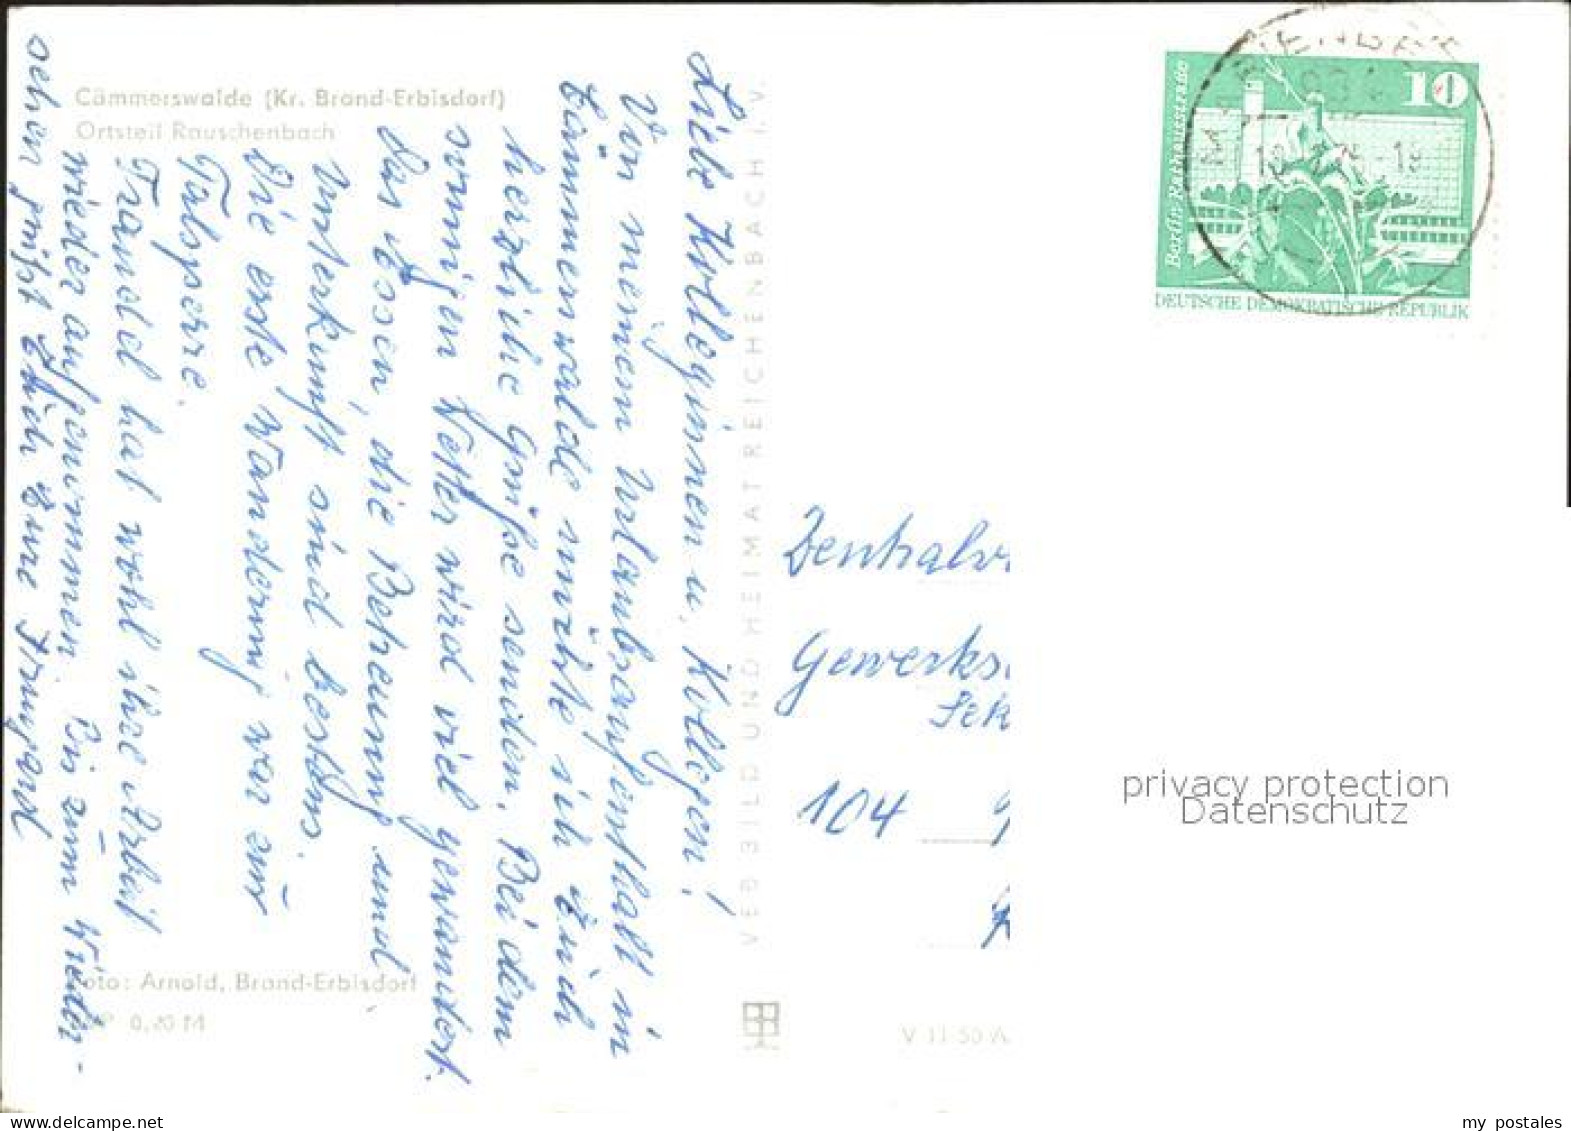 Cämmerswalde (Kr. Brand-Erbisdorf)
Ortsteil Rauschenbach
Liebe Kolleginnen u. Kollegen!
Von meinem Urlaubsaufenthalt in
Cämmerswalde möchte ich Euch
herzliche Grüße senden. Bei dem
sonnigen Wetter wird viel gewandert.
Das Essen, die Betreuung und
Unterkunft sind bestens.
Die erste Wanderung war zur
Talsperre.
Traudel hat wohl ihre Arbeit
wieder aufgenommen. Bis zum Wieder-
sehen grüßt Euch Eure Irmgard
Foto: Arnold, Brand-Erbisdorf
0,20 M
VEB BILD UND HEIMAT REICHENBACH I. V.
V 11 50 A
10
Berlin, Rathausstraße
DEUTSCHE DEMOKRATISCHE REPUBLIK
Zentralv
Gewerks
Sek
104
privacy protection
Datenschutz
my postales